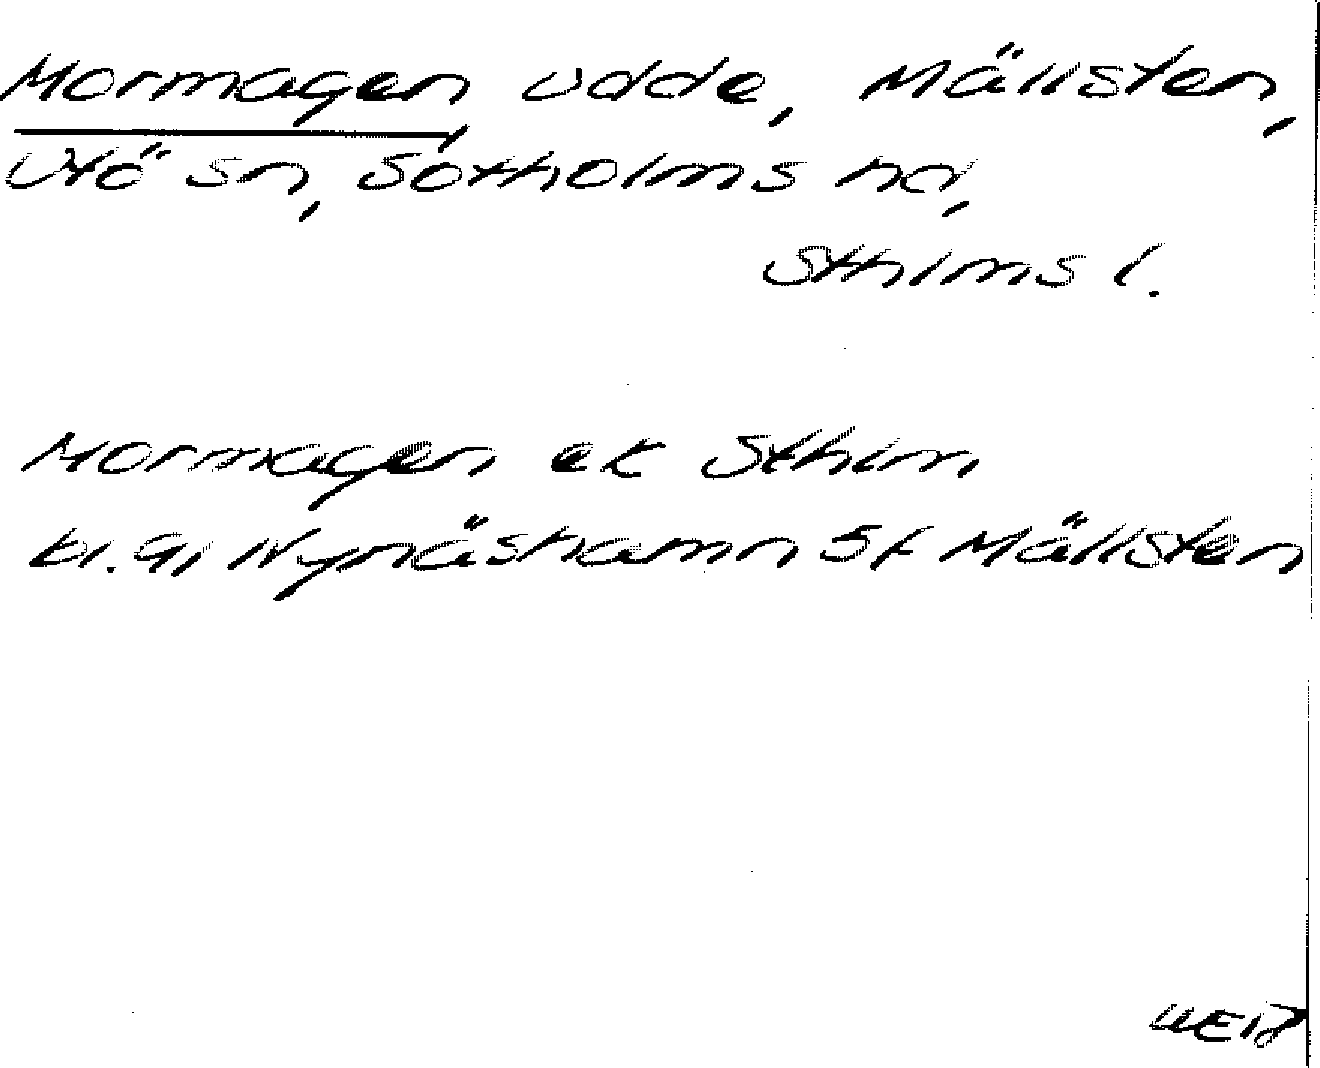 Mormagen, udde, Mällsten,
Utö sn, Sotholms hd,
Sthlms l.
Mormagen ek Sthlm
bl. 9, Nynäshamn St Mällsten